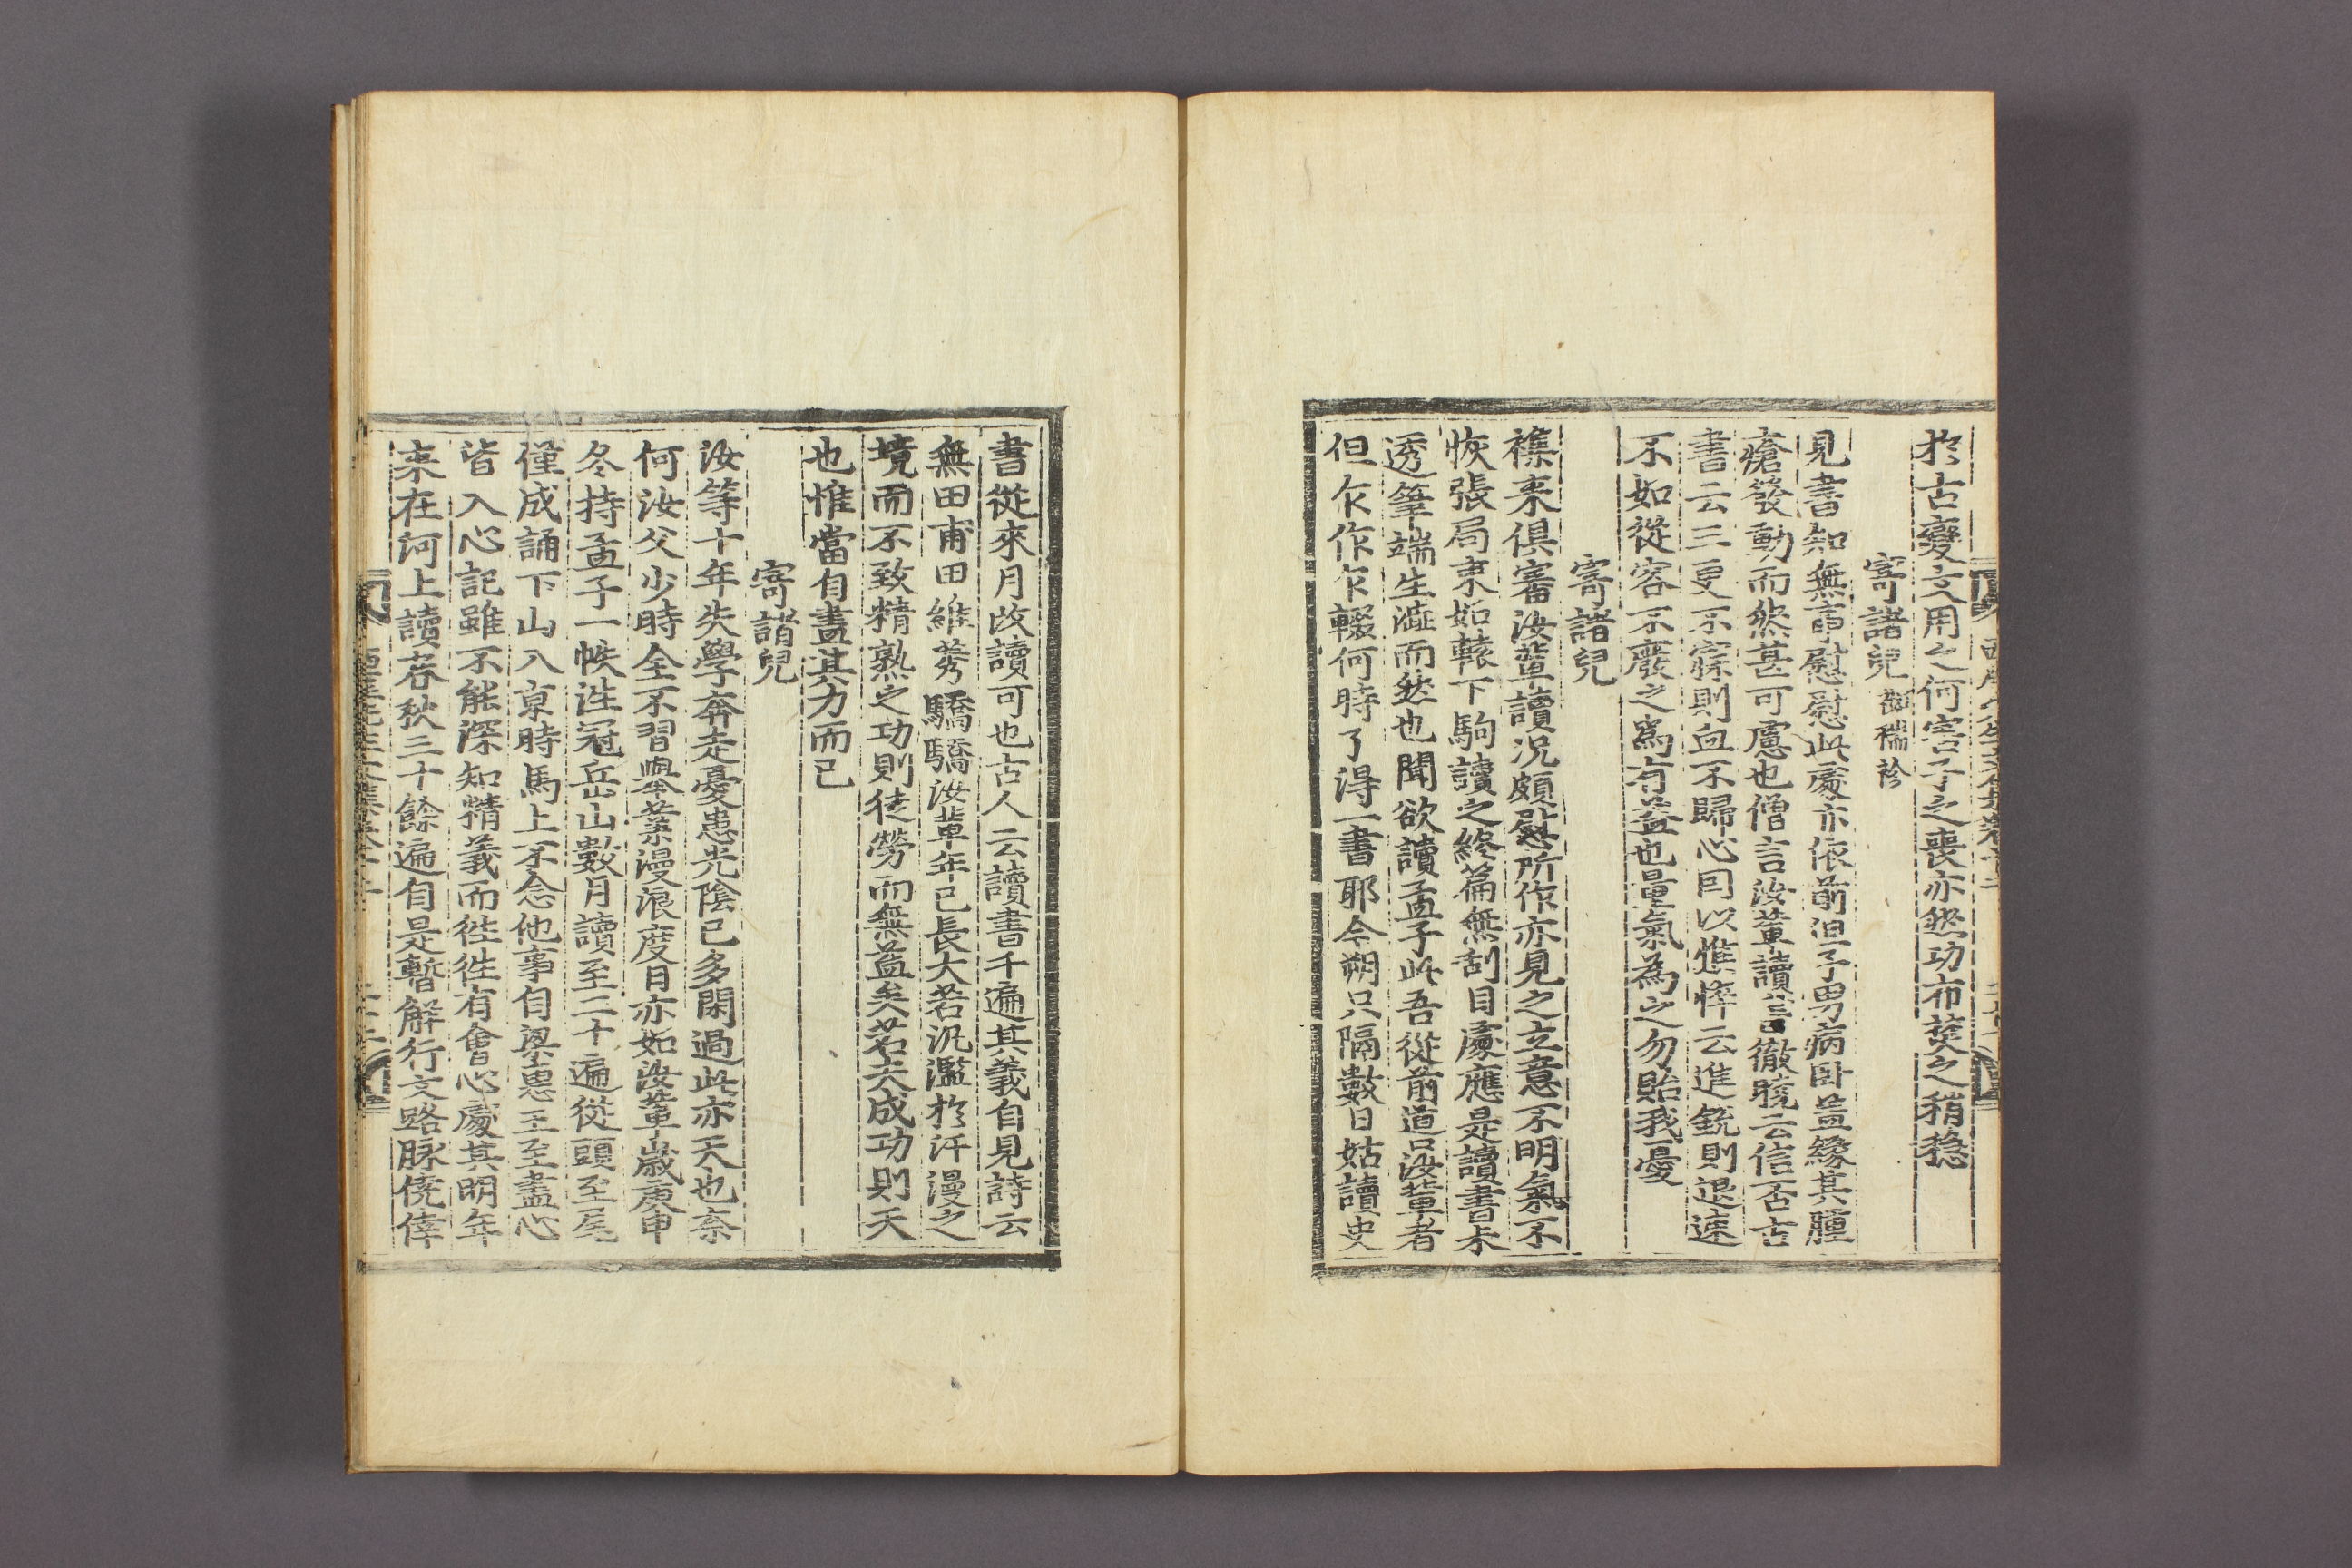 於古變文用之何害子之喪亦然功布葵之稍穩
寄諸兒 䄎稱袗
見書知無事慰慰此處亦依前但子男病卧盖緣其腫
瘡發動而然甚可慮也僧言汝輩讀書徹曉云信否古
書云三更不寐則血不歸心因以憔悴云進銳則退速
不如從容不廢之爲有益也量氣為之勿貽我憂
寄諸兒
襍来俱審汝輩讀況頗慰所作亦見之立意不明氣不
恢張局束如轅下駒讀之終篇無刮目處應是讀書未
透筆端生澁而然也聞欲讀孟子此吾從前道只汝輩者
但乍作乍輟何時了得一書耶今朔只隔數日姑讀史
書從來月改讀可也古人云讀書千遍其義自見詩云
無田甫田維莠驕驕汝輩年已長大若汎濫於汗漫之
境而不致精熟之功則徒勞而無益矣若夫成功則天
也惟當自盡其力而已
寄諸兒
汝等十年失學奔走憂患光陰已多閑過此亦天也奈
何汝父少時全不習擧業漫浪度日亦如汝輩歲庚申
冬持孟子一帙往冠岳山數月讀至二十遍從頭至尾
僅成誦下山入京時馬上不念他事自梁惠王至盡心
皆入心記雖不能深知精義而徃徃有會心處其明年
来在河上讀春秋三十餘遍自是暫解行文路脉僥倖